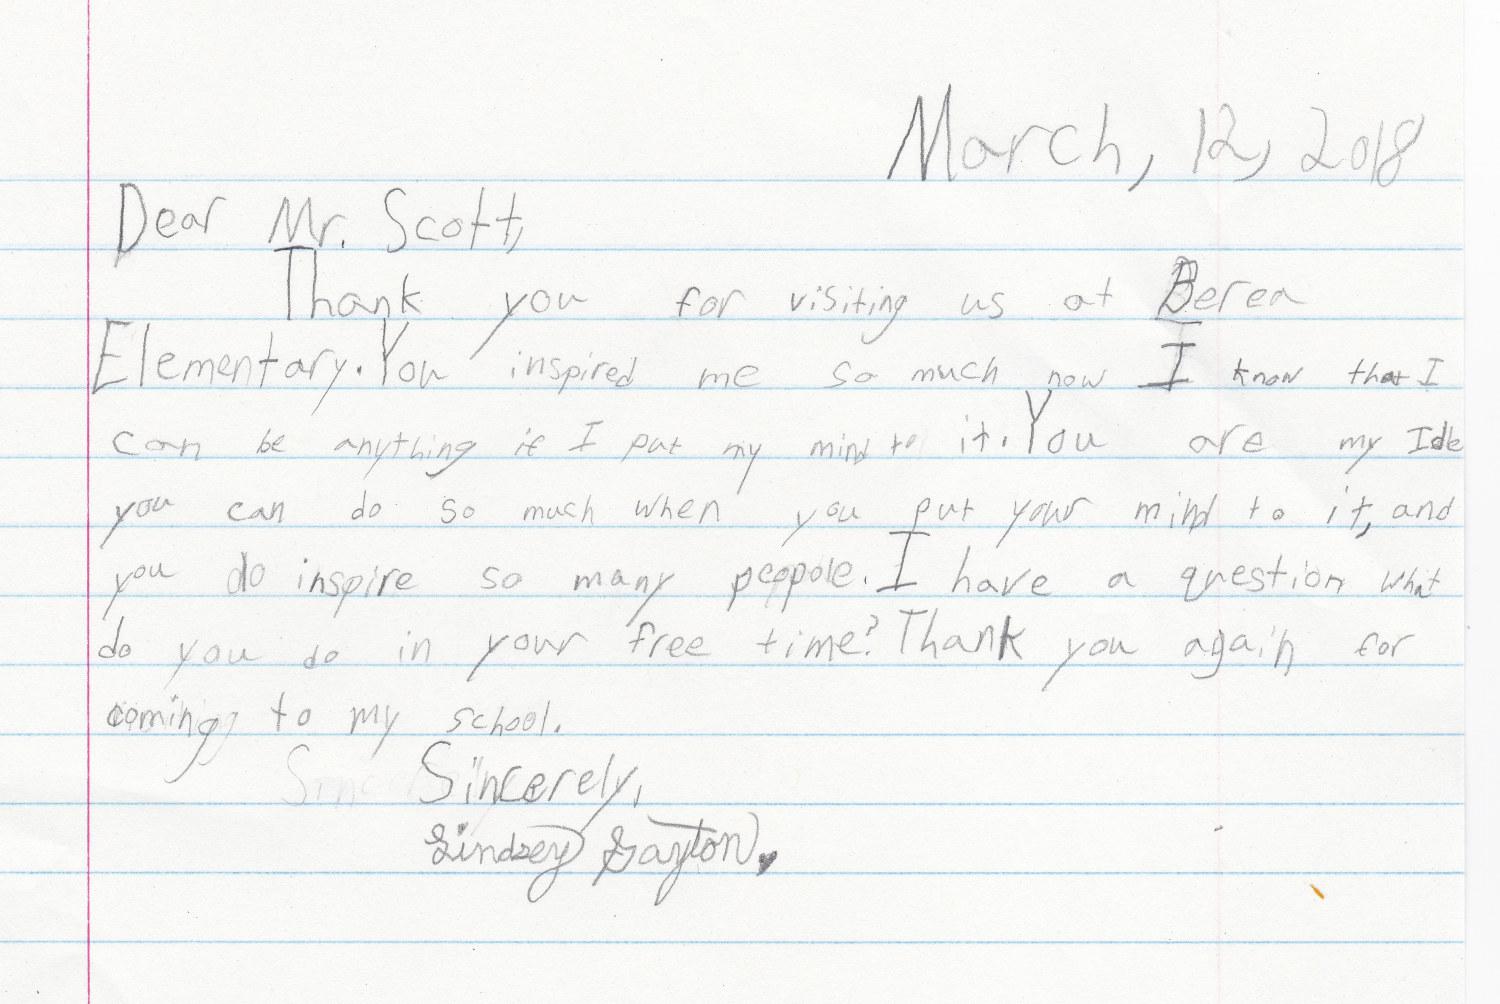 March, 12, 2018
Dear Mr. Scott,
Thank you for visiting us at Berea
Elementary. You inspired me so much now I know that I
can be anything if I put my mind to it. You are my Idle
you can do so much when you put your mind to it, and
you do inspire so many peopole. I have a question what
do you do in your free time? Thank you again for
coming to my school.
Sincerely,
Lindsey